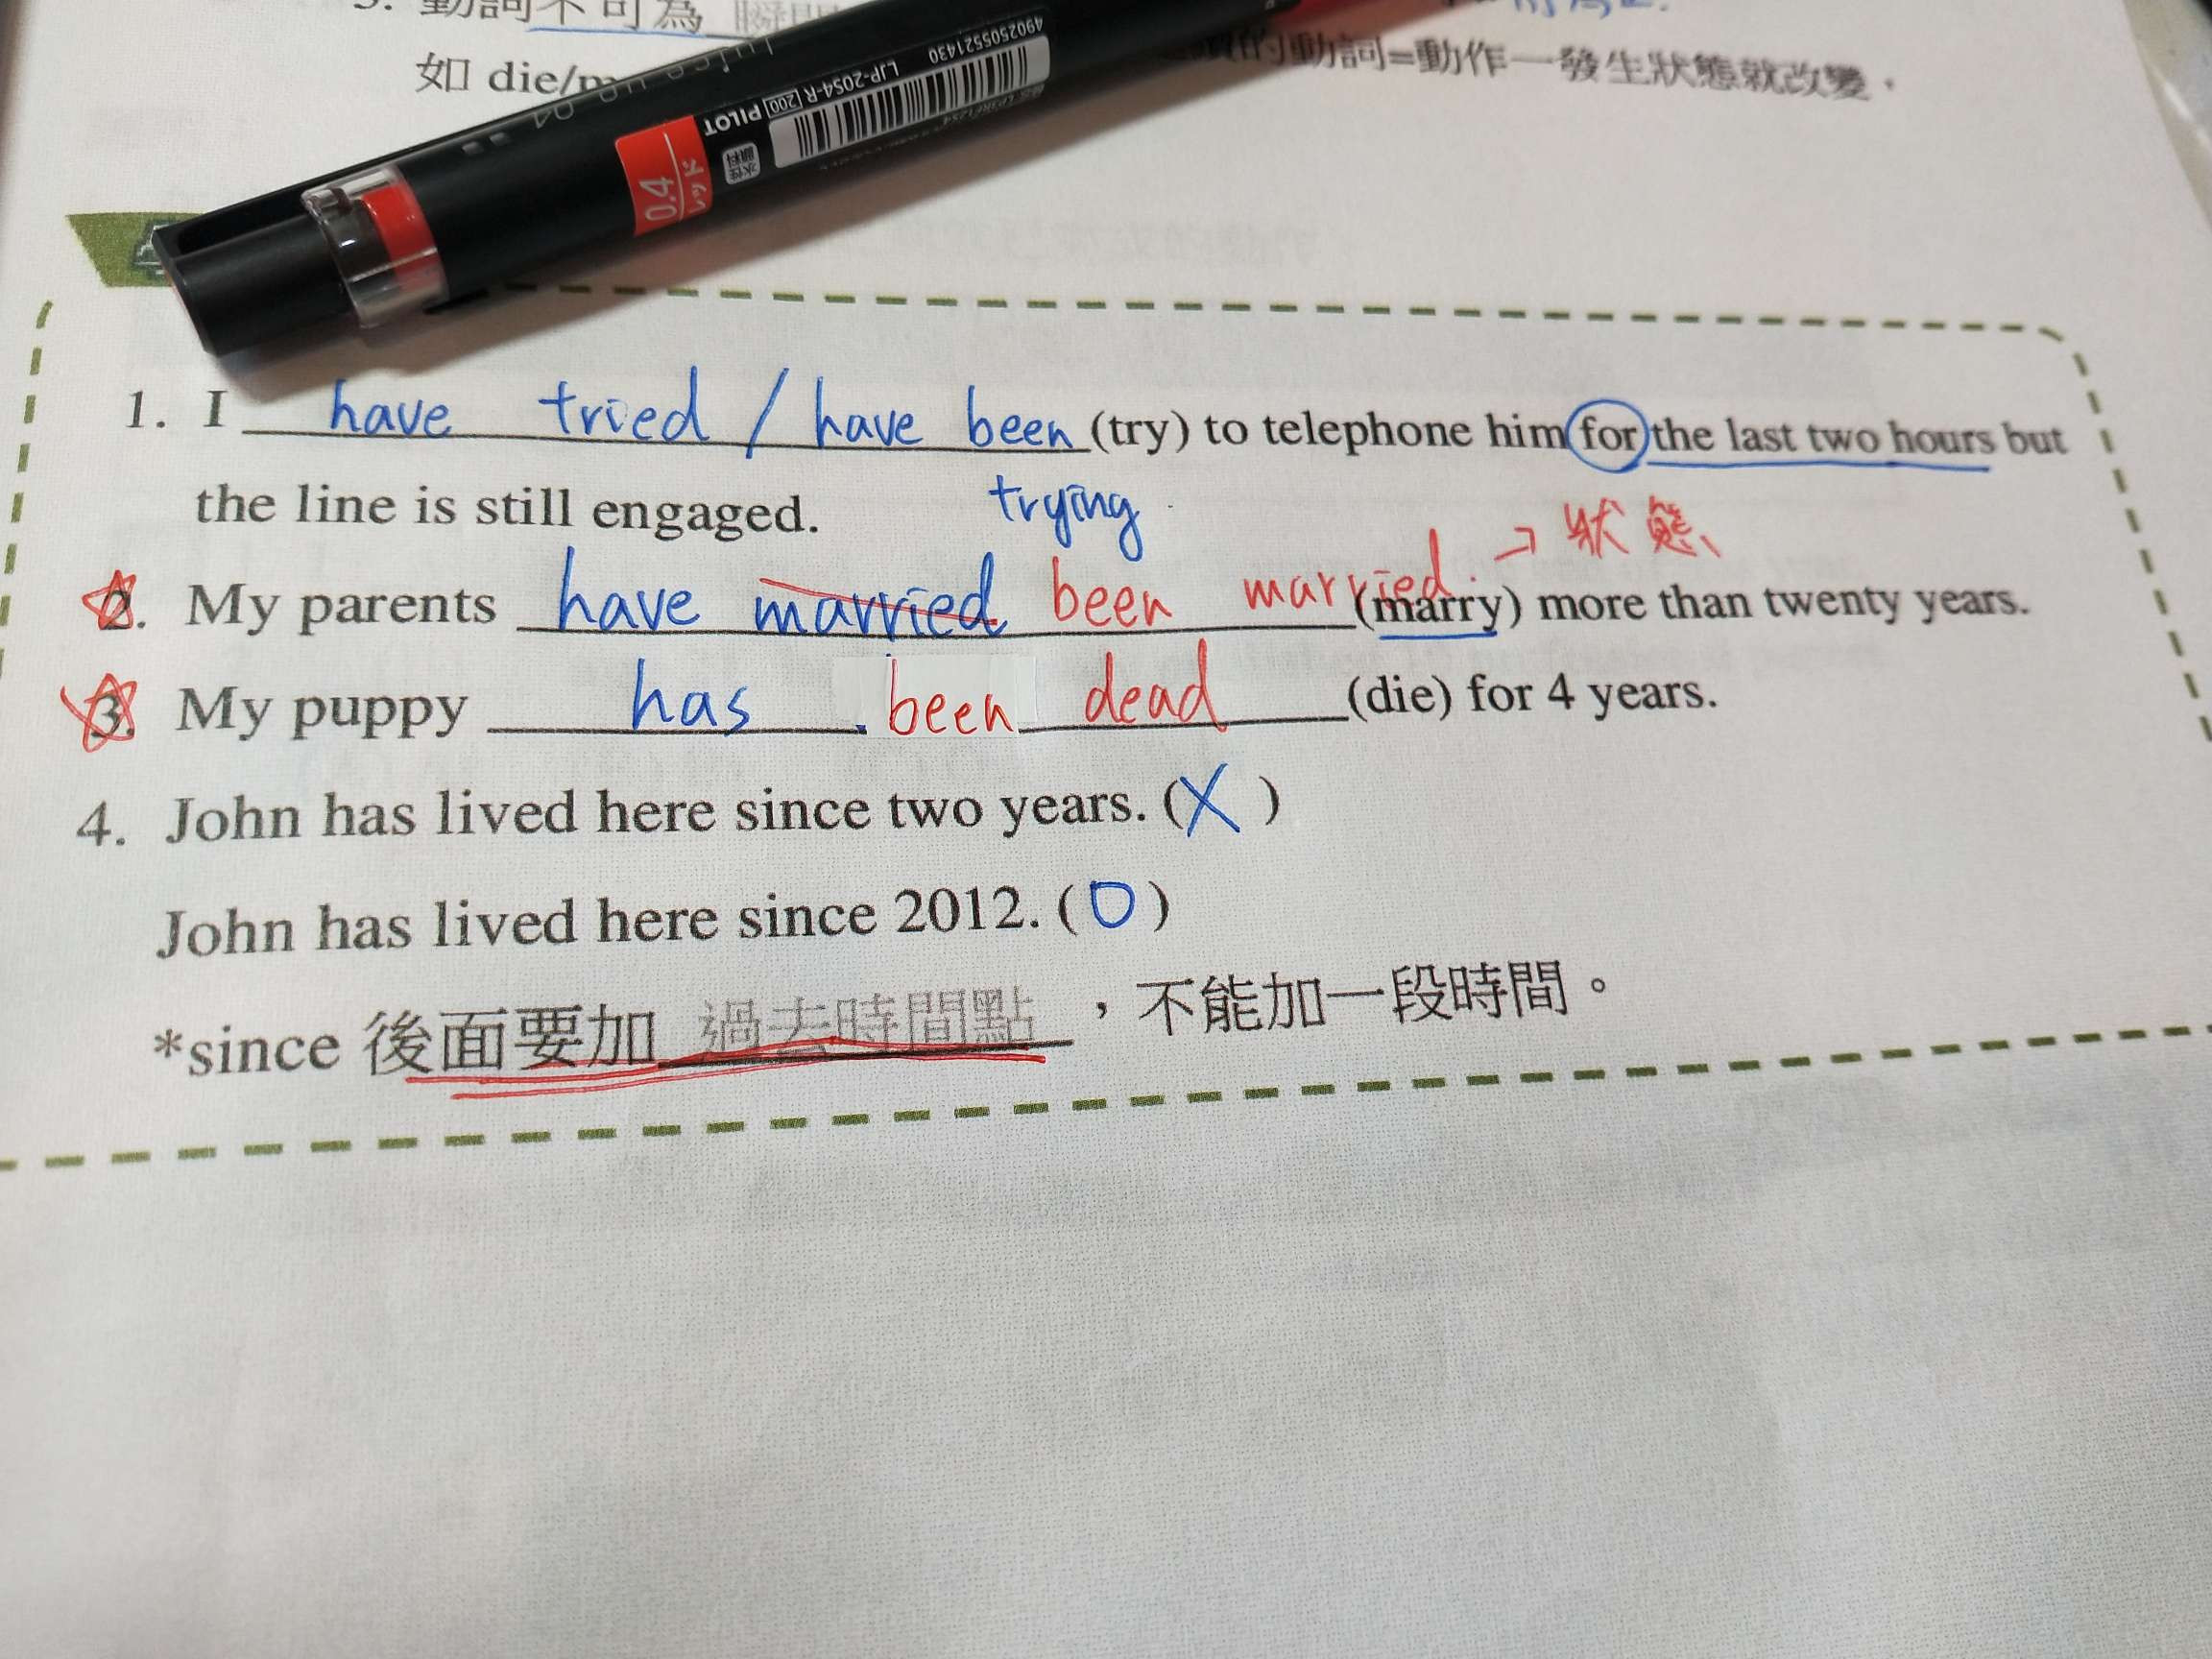 3. 動詞不可為
如 die/
的動詞=動作一發生狀態就改變，
4902505521430
LJP-20S4-R [200] PILOT
水性顔料
0.4 レッド
1. I have tried / have been (try) to telephone him for the last two hours but
the line is still engaged. trying
→ 狀態
2. My parents have married been married (marry) more than twenty years.
3. My puppy has been dead (die) for 4 years.
4. John has lived here since two years. (X)
John has lived here since 2012. (O)
*since 後面要加 過去時間點，不能加一段時間。